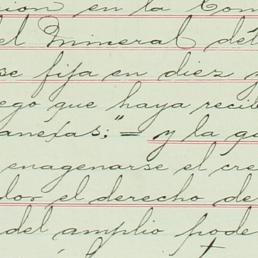 cion en la Con
el Mineral del
se fija en diez y
ego que haya recib
anetas;" = y la qu
enagenarse el cre
dor el derecho de
del amplio pode